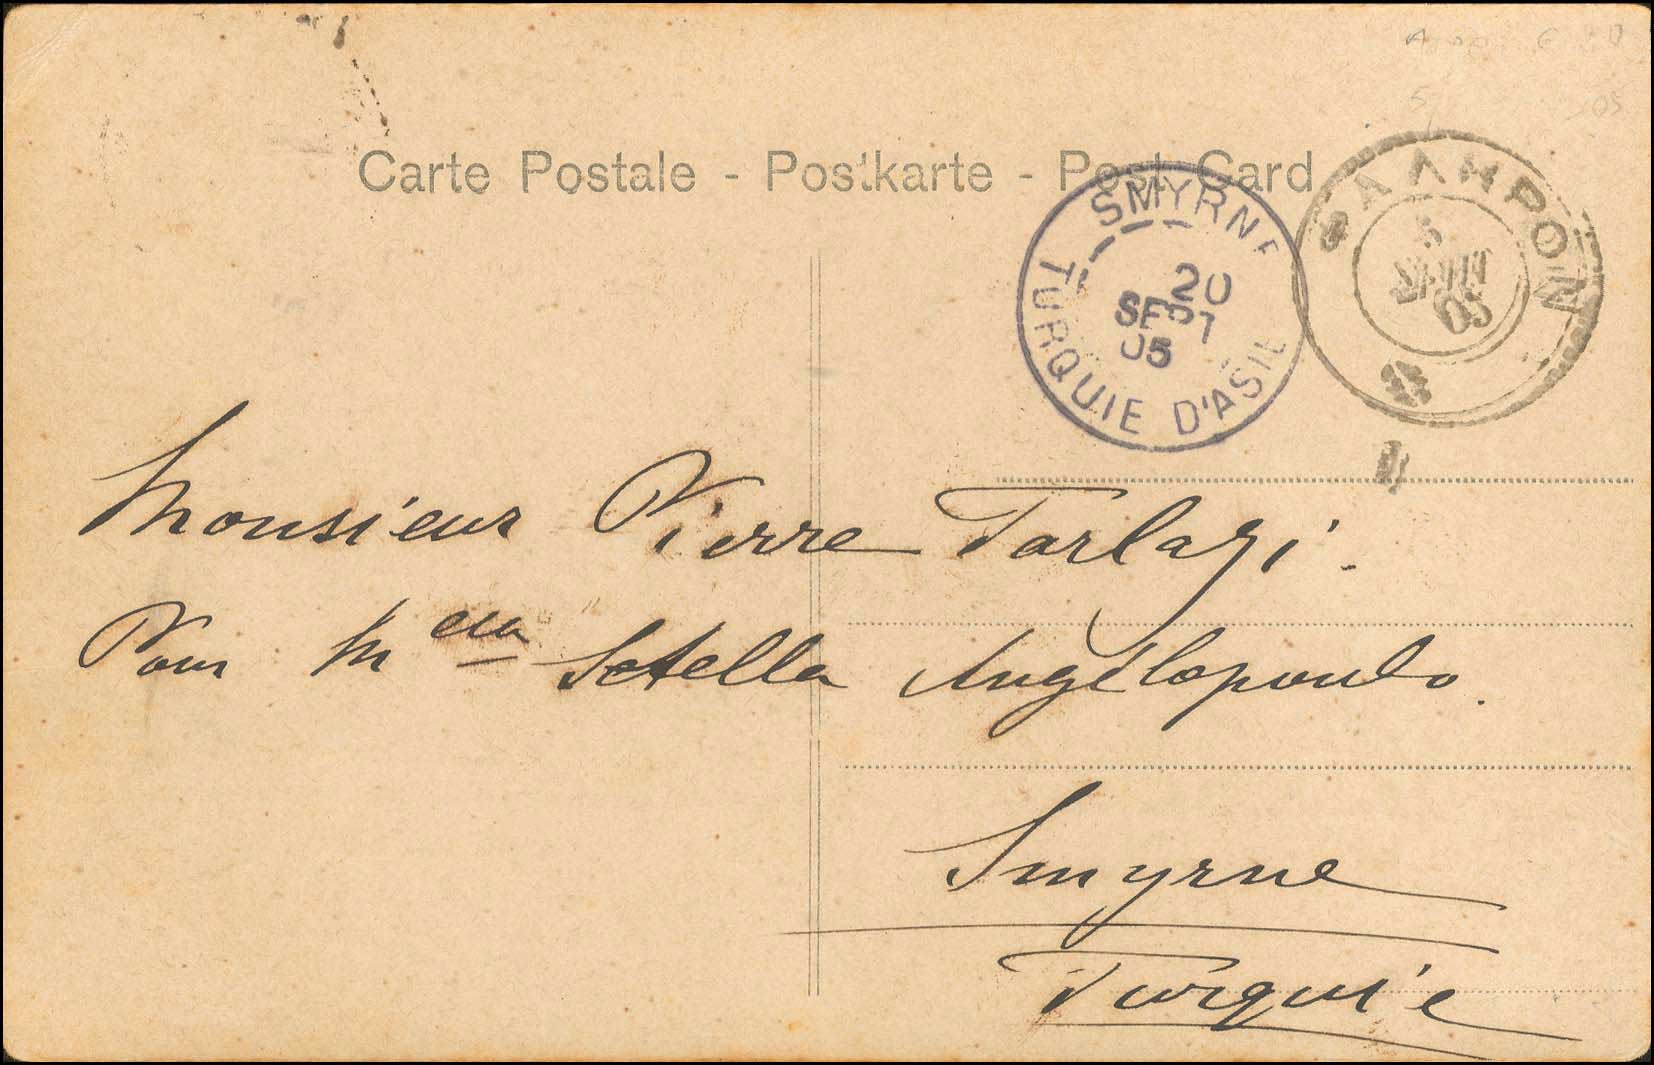 Carte Postale - Postkarte - Post Card
SMYRNE
20
SEPT
05
TURQUIE D'ASIE
ΦΑΛΗΡΟΝ
5
ΣΕΠΤ
05
Monsieur Pierre Tarlazi.
Pour Melle Stella Angelopoulo.
Smyrne
Turquie